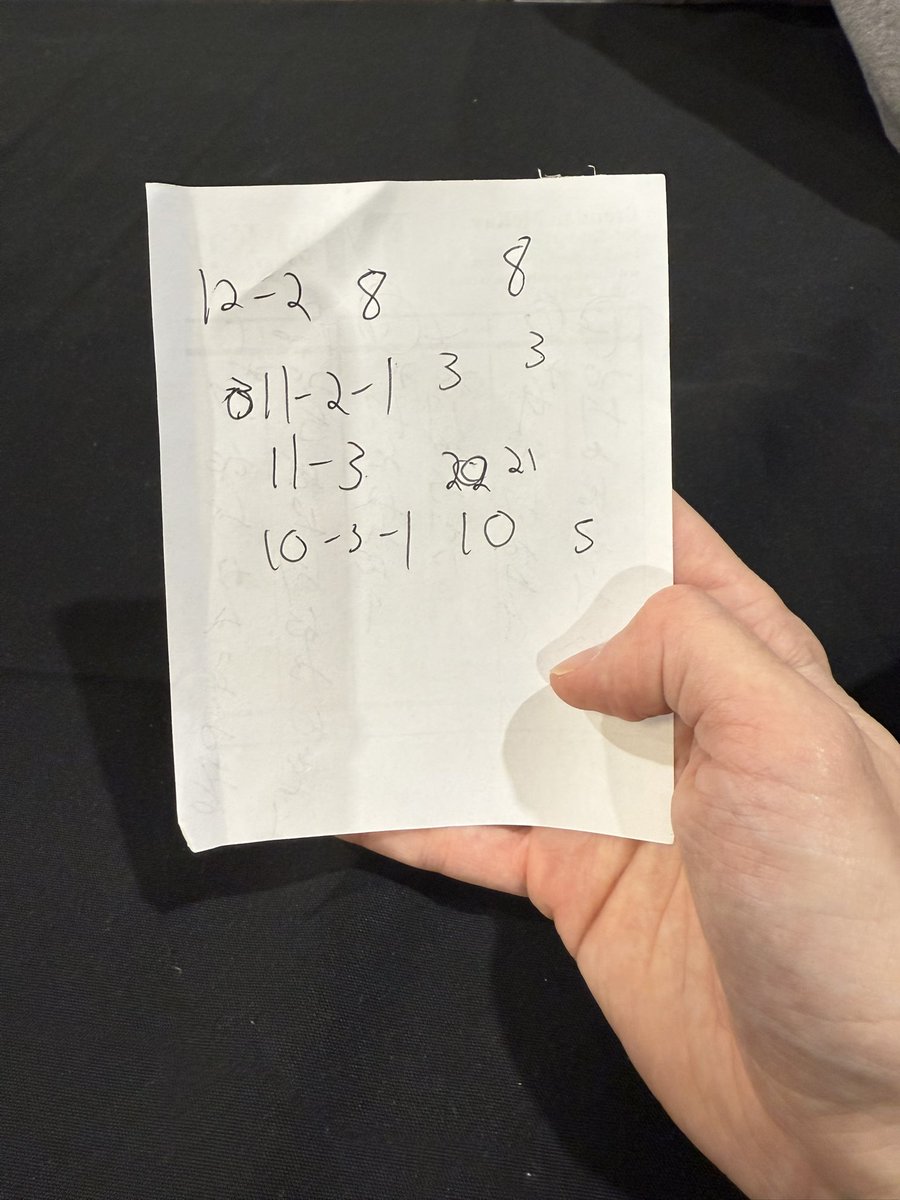 12-2 8 8
11-2-1 3 3
11-3 21
10-3-1 10 5